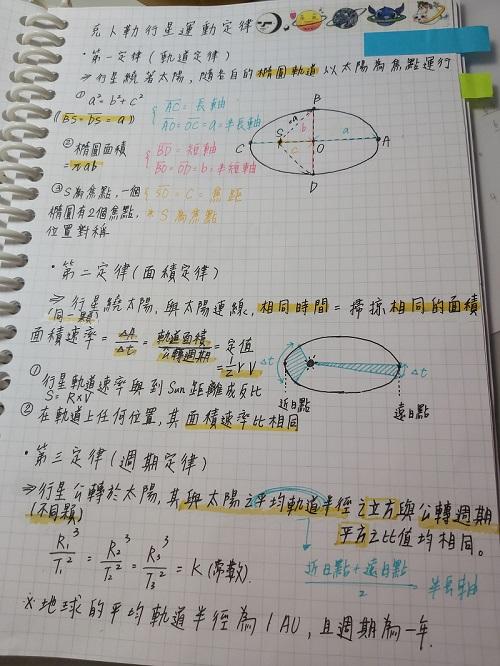 克卜勒行星運動定律
・第一定律(軌道定律)
⇒行星繞著太陽,隨各自的橢圓軌道以太陽為焦點運行
① a²=b²+c²
(BS=DS=a)
{AC=長軸
AO=OC=a=半長軸
② 橢圓面積
=πab
{BD=短軸
BO=OD=b=半短軸
③ S為焦點,一個
橢圓有2個焦點,
位置對稱
{SO=C=焦距
* S為焦點
B
a
b
a
C
S
c
O
A
D
・第二定律(面積定律)
⇒行星繞太陽,與太陽連線,相同時間=掃掠相同的面積
(同一顆)
面積速率=ΔA/Δt=軌道面積/公轉週期=定值
=1/2 r v
① 行星軌道速率與到Sun距離成反比
S=R×V
② 在軌道上任何位置,其面積速率比相同
Δt
Δt
近日點
遠日點
・第三定律(週期定律)
⇒行星公轉於太陽,其與太陽之平均軌道半徑之立方與公轉週期
(不同顆)
平方之比值均相同。
R₁³/T₁²=R₂³/T₂²=R₃³/T₃²=K(常數).
近日點+遠日點/2
半長軸
※地球的平均軌道半徑為1AU,且週期為一年.